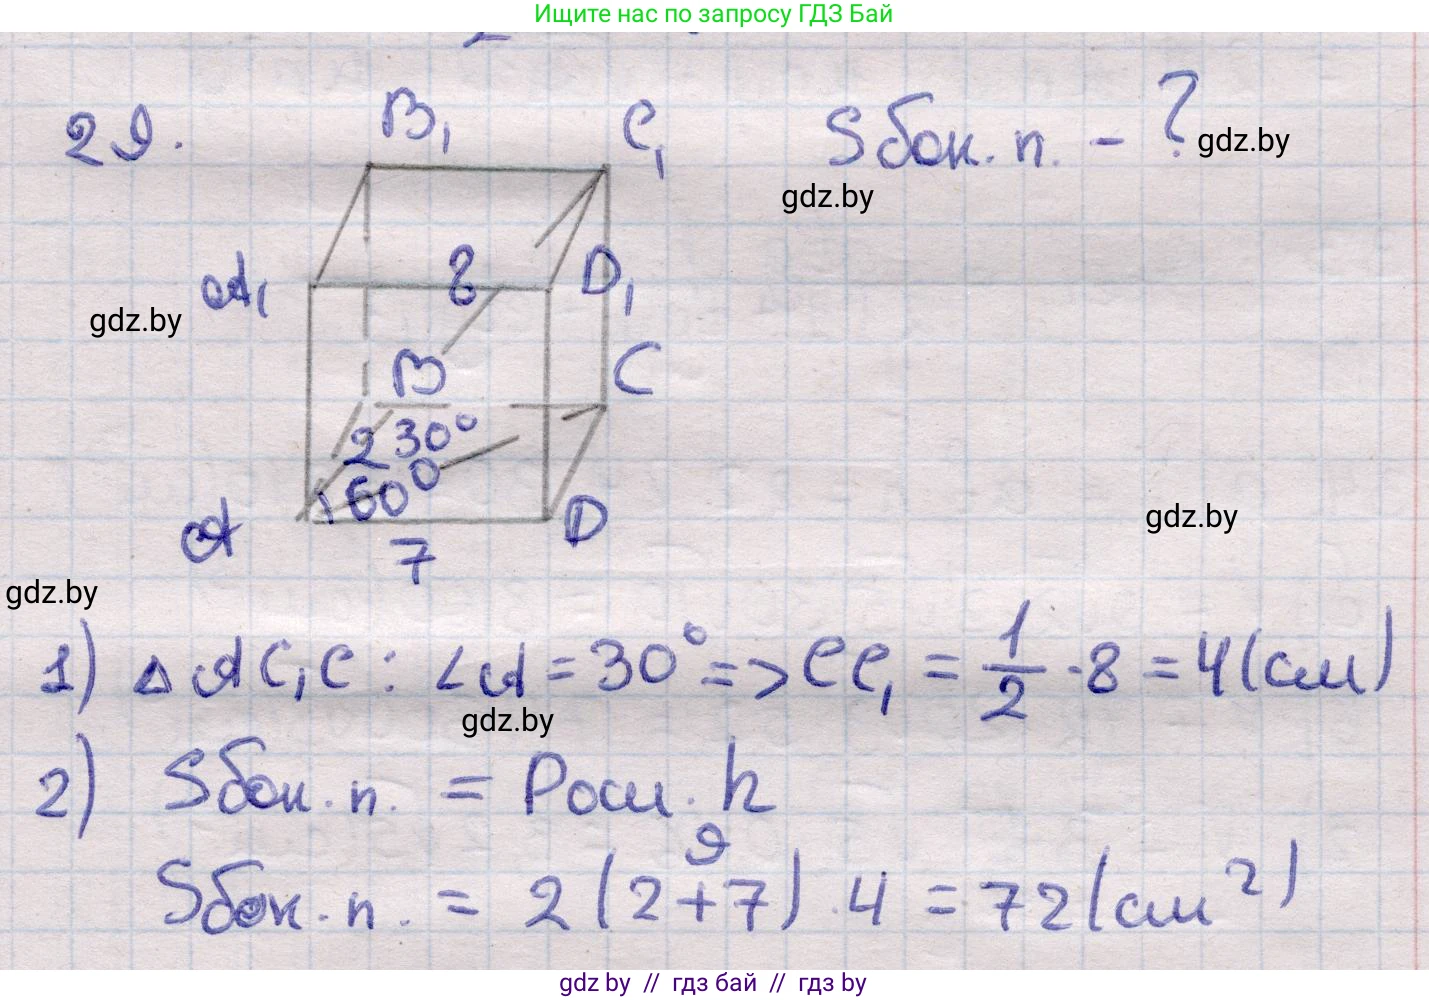 Ищите нас по запросу ГДЗ Бай
29.
B₁
C₁
Sбок. п. - ?
gdz.by
gdz.by
A₁
8
D₁
gdz.by
B
C
2
30°
60°
A
7
D
gdz.by
gdz.by
1) △ AC₁C : ∠A = 30° => CC₁ = 1/2 · 8 = 4 (см)
gdz.by
2) Sбок. п. = Pосн. h
9
Sбок. п. = 2 (2+7) · 4 = 72 (см²)
gdz by // гдз бай // гдз by